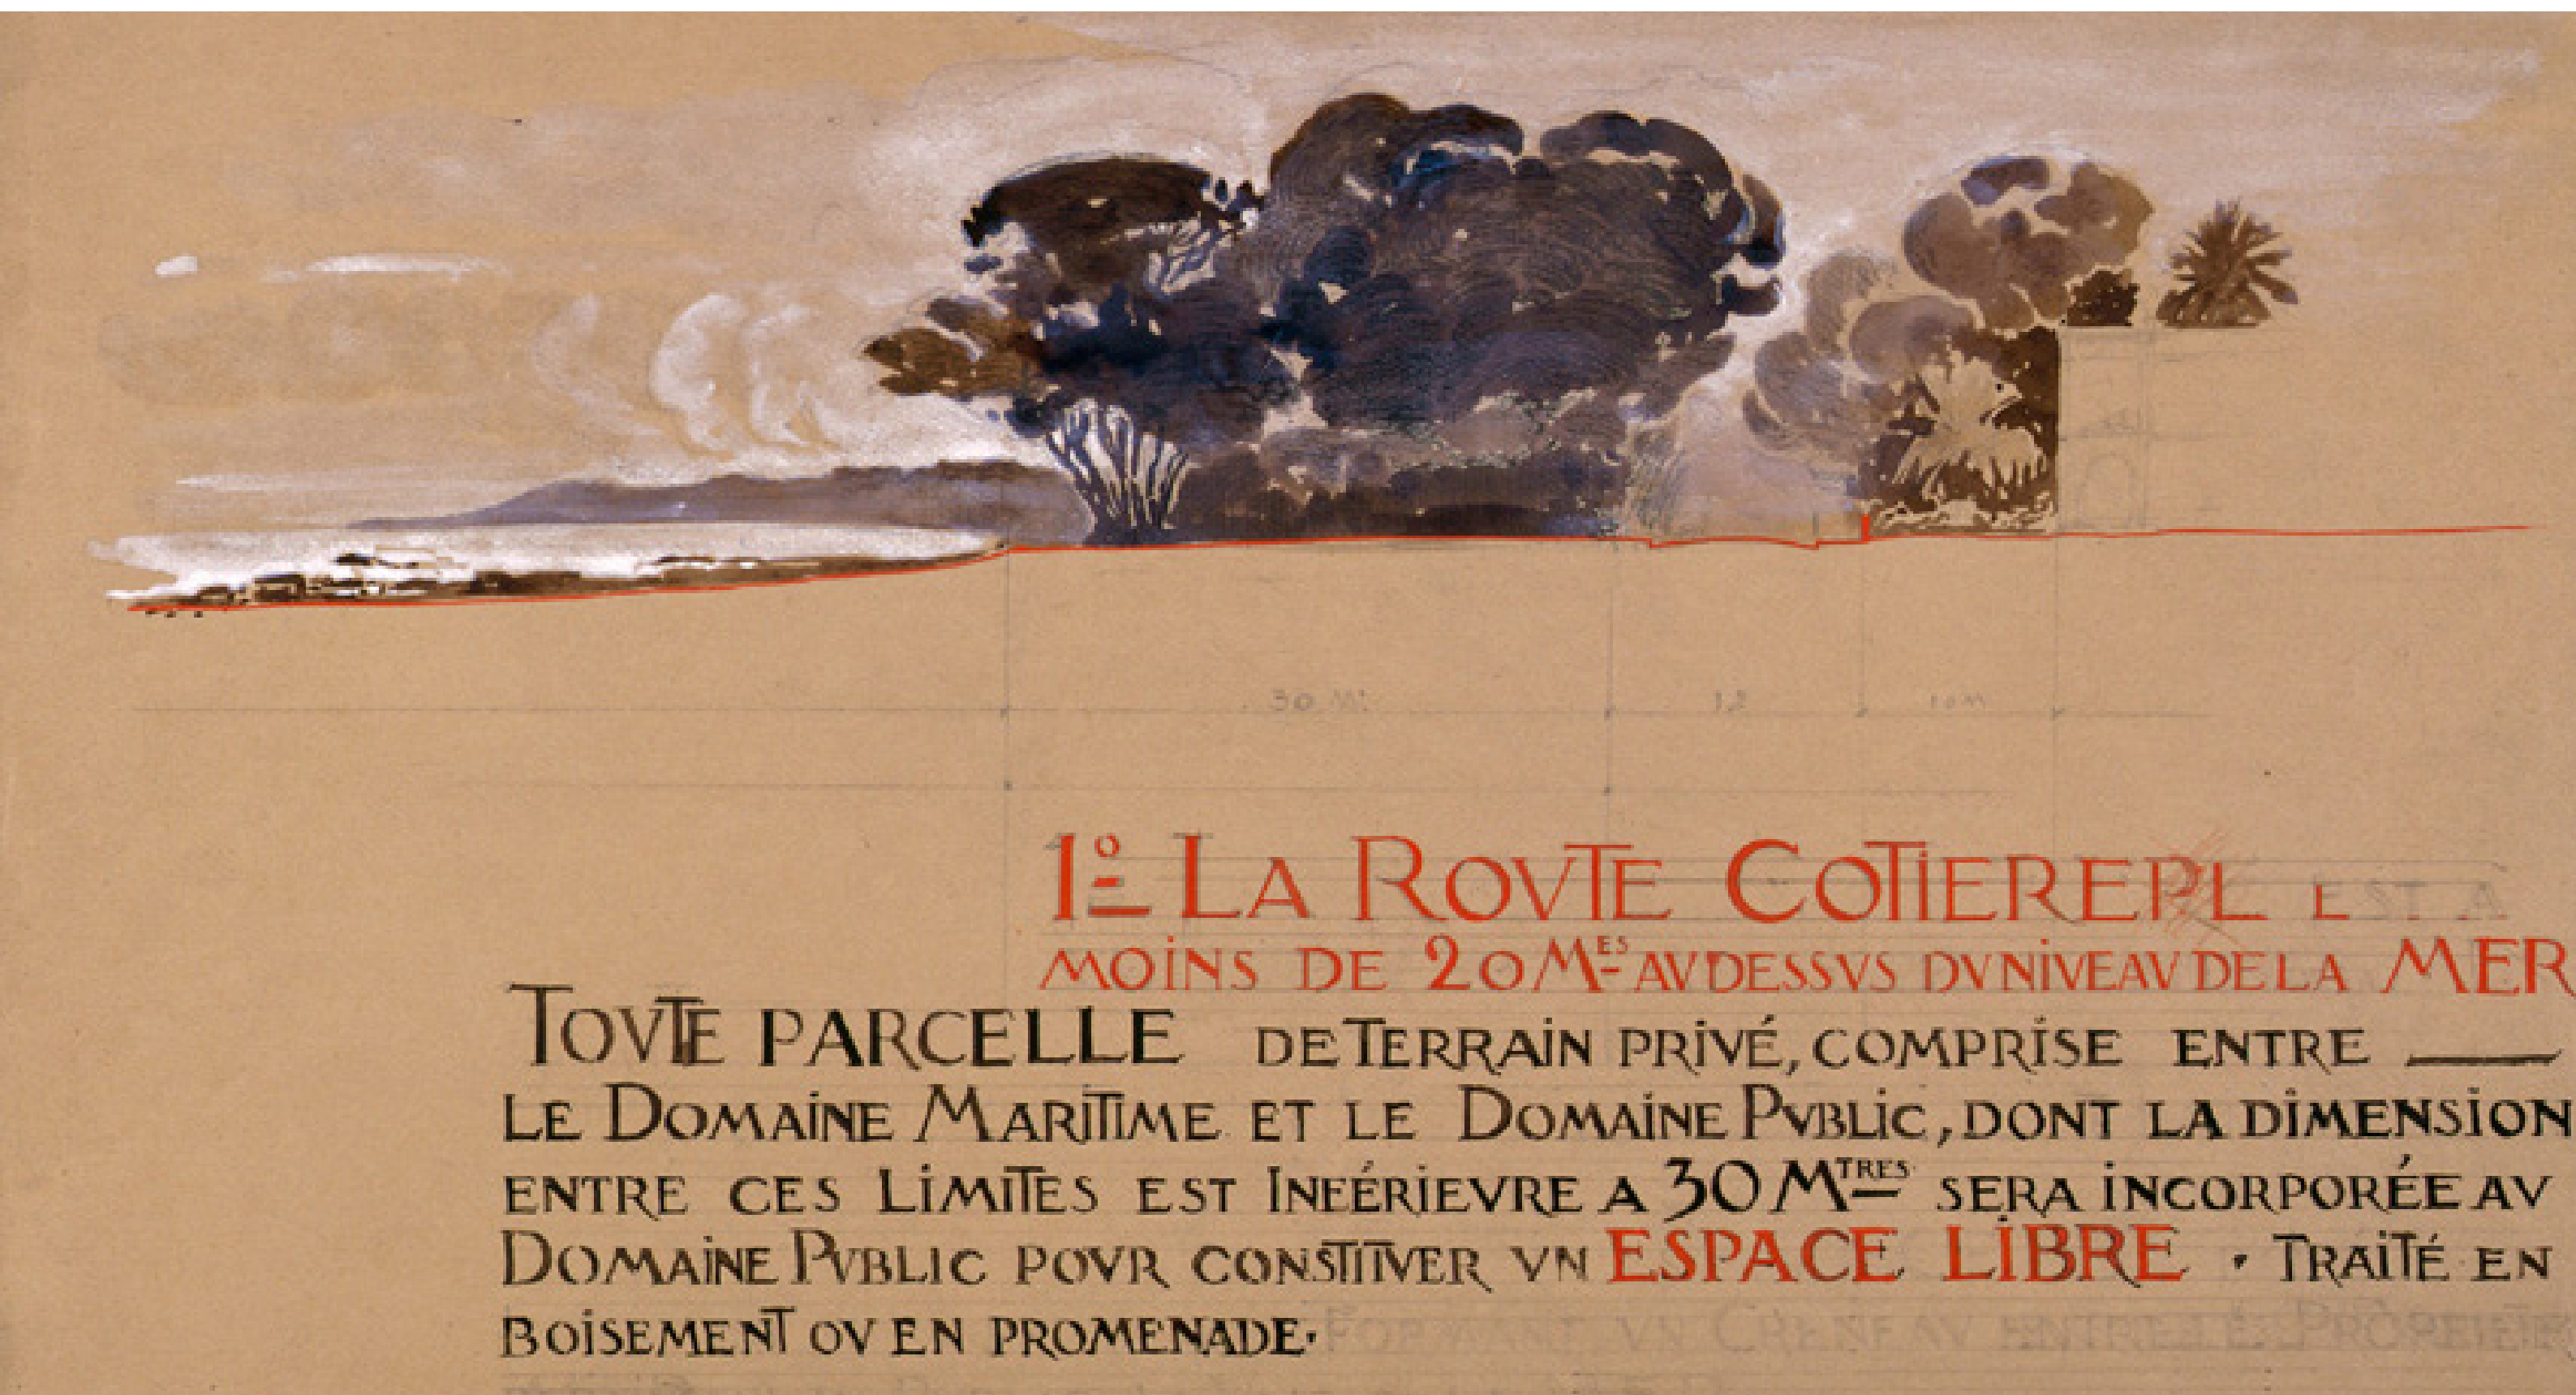 30 M. 12 10m
1º LA ROVTE COTIEREPL EST A
MOINS DE 20 MES AVDESSVS DV NIVEAV DE LA MER
TOVTE PARCELLE DE TERRAIN PRIVÉ, COMPRISE ENTRE
LE DOMAINE MARITIME ET LE DOMAINE PVBLIC, DONT LA DIMENSION
ENTRE CES LIMITES EST INFÉRIEVRE A 30 MTRES SERA INCORPORÉE AV
DOMAINE PVBLIC POVR CONSTITVER VN ESPACE LIBRE . TRAITÉ EN
BOISEMENT OV EN PROMENADE. VN CRÉNEAV ENTRE